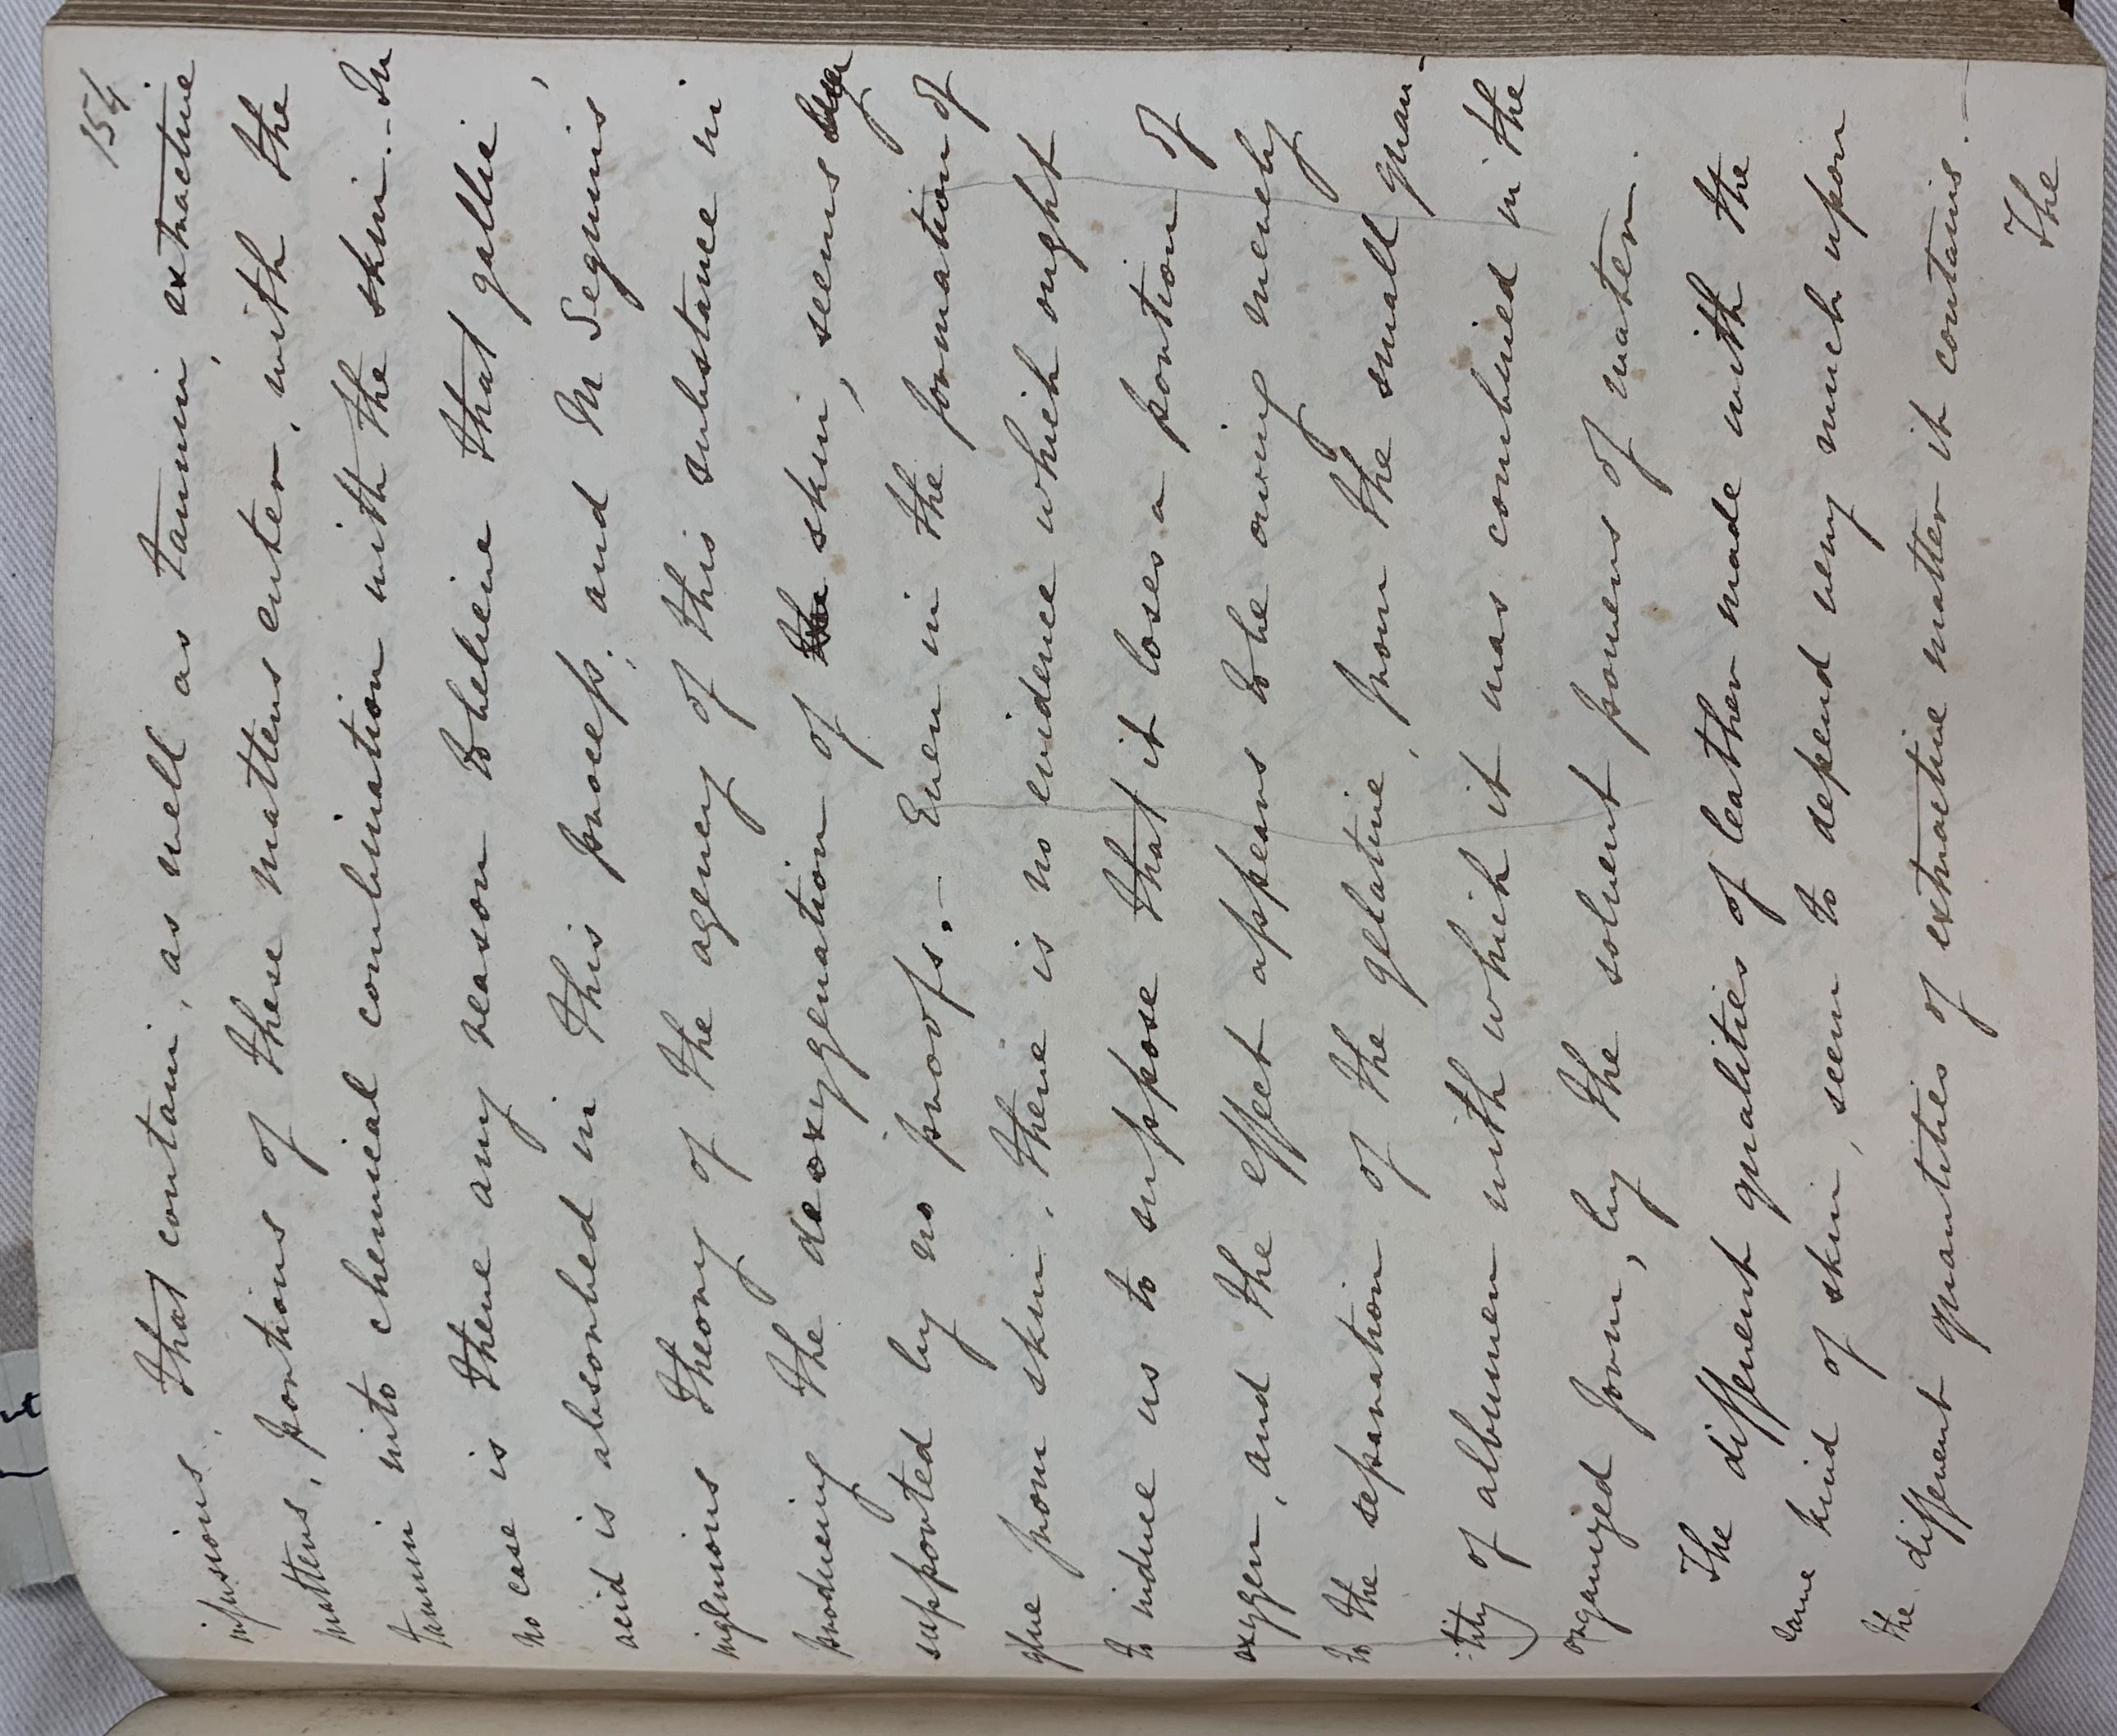 154
infusions, that contain, as well as tannin, extractive
matters, portions of these matters enter, with the
tannin into chemical combination with the skin.- In
no case is there any reason to believe that gallic
acid is absorbed in this process; and M Seguin's
ingenious theory of the agency of this substance in
producing the deoxygenation of the skin, seems
supported by no proofs.- Even in the formation of
glue from skin, there is no evidence which ought
to induce us to suppose that it loses a portion of
oxygen, and the effect appears to be owing merely
to the separation of the gelatine, from the small quan-
-tity of albumen with which it was combined in the
organized form, by the solvent powers of water.
The different qualities of leather made with the
same kind of skin, seem to depend very much upon
the different quantities of extractive matter it contains.-
The